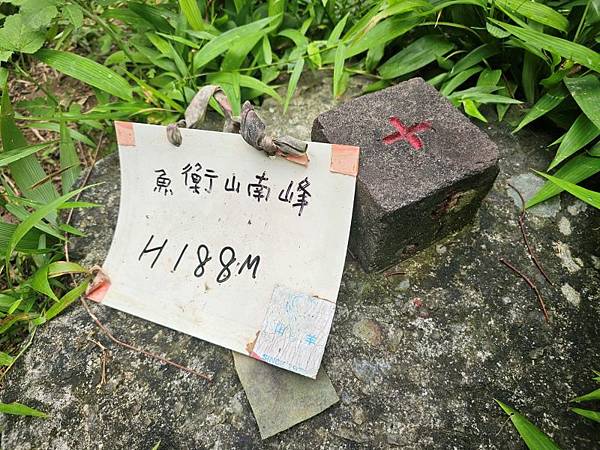 魚衡山南峰
H188M